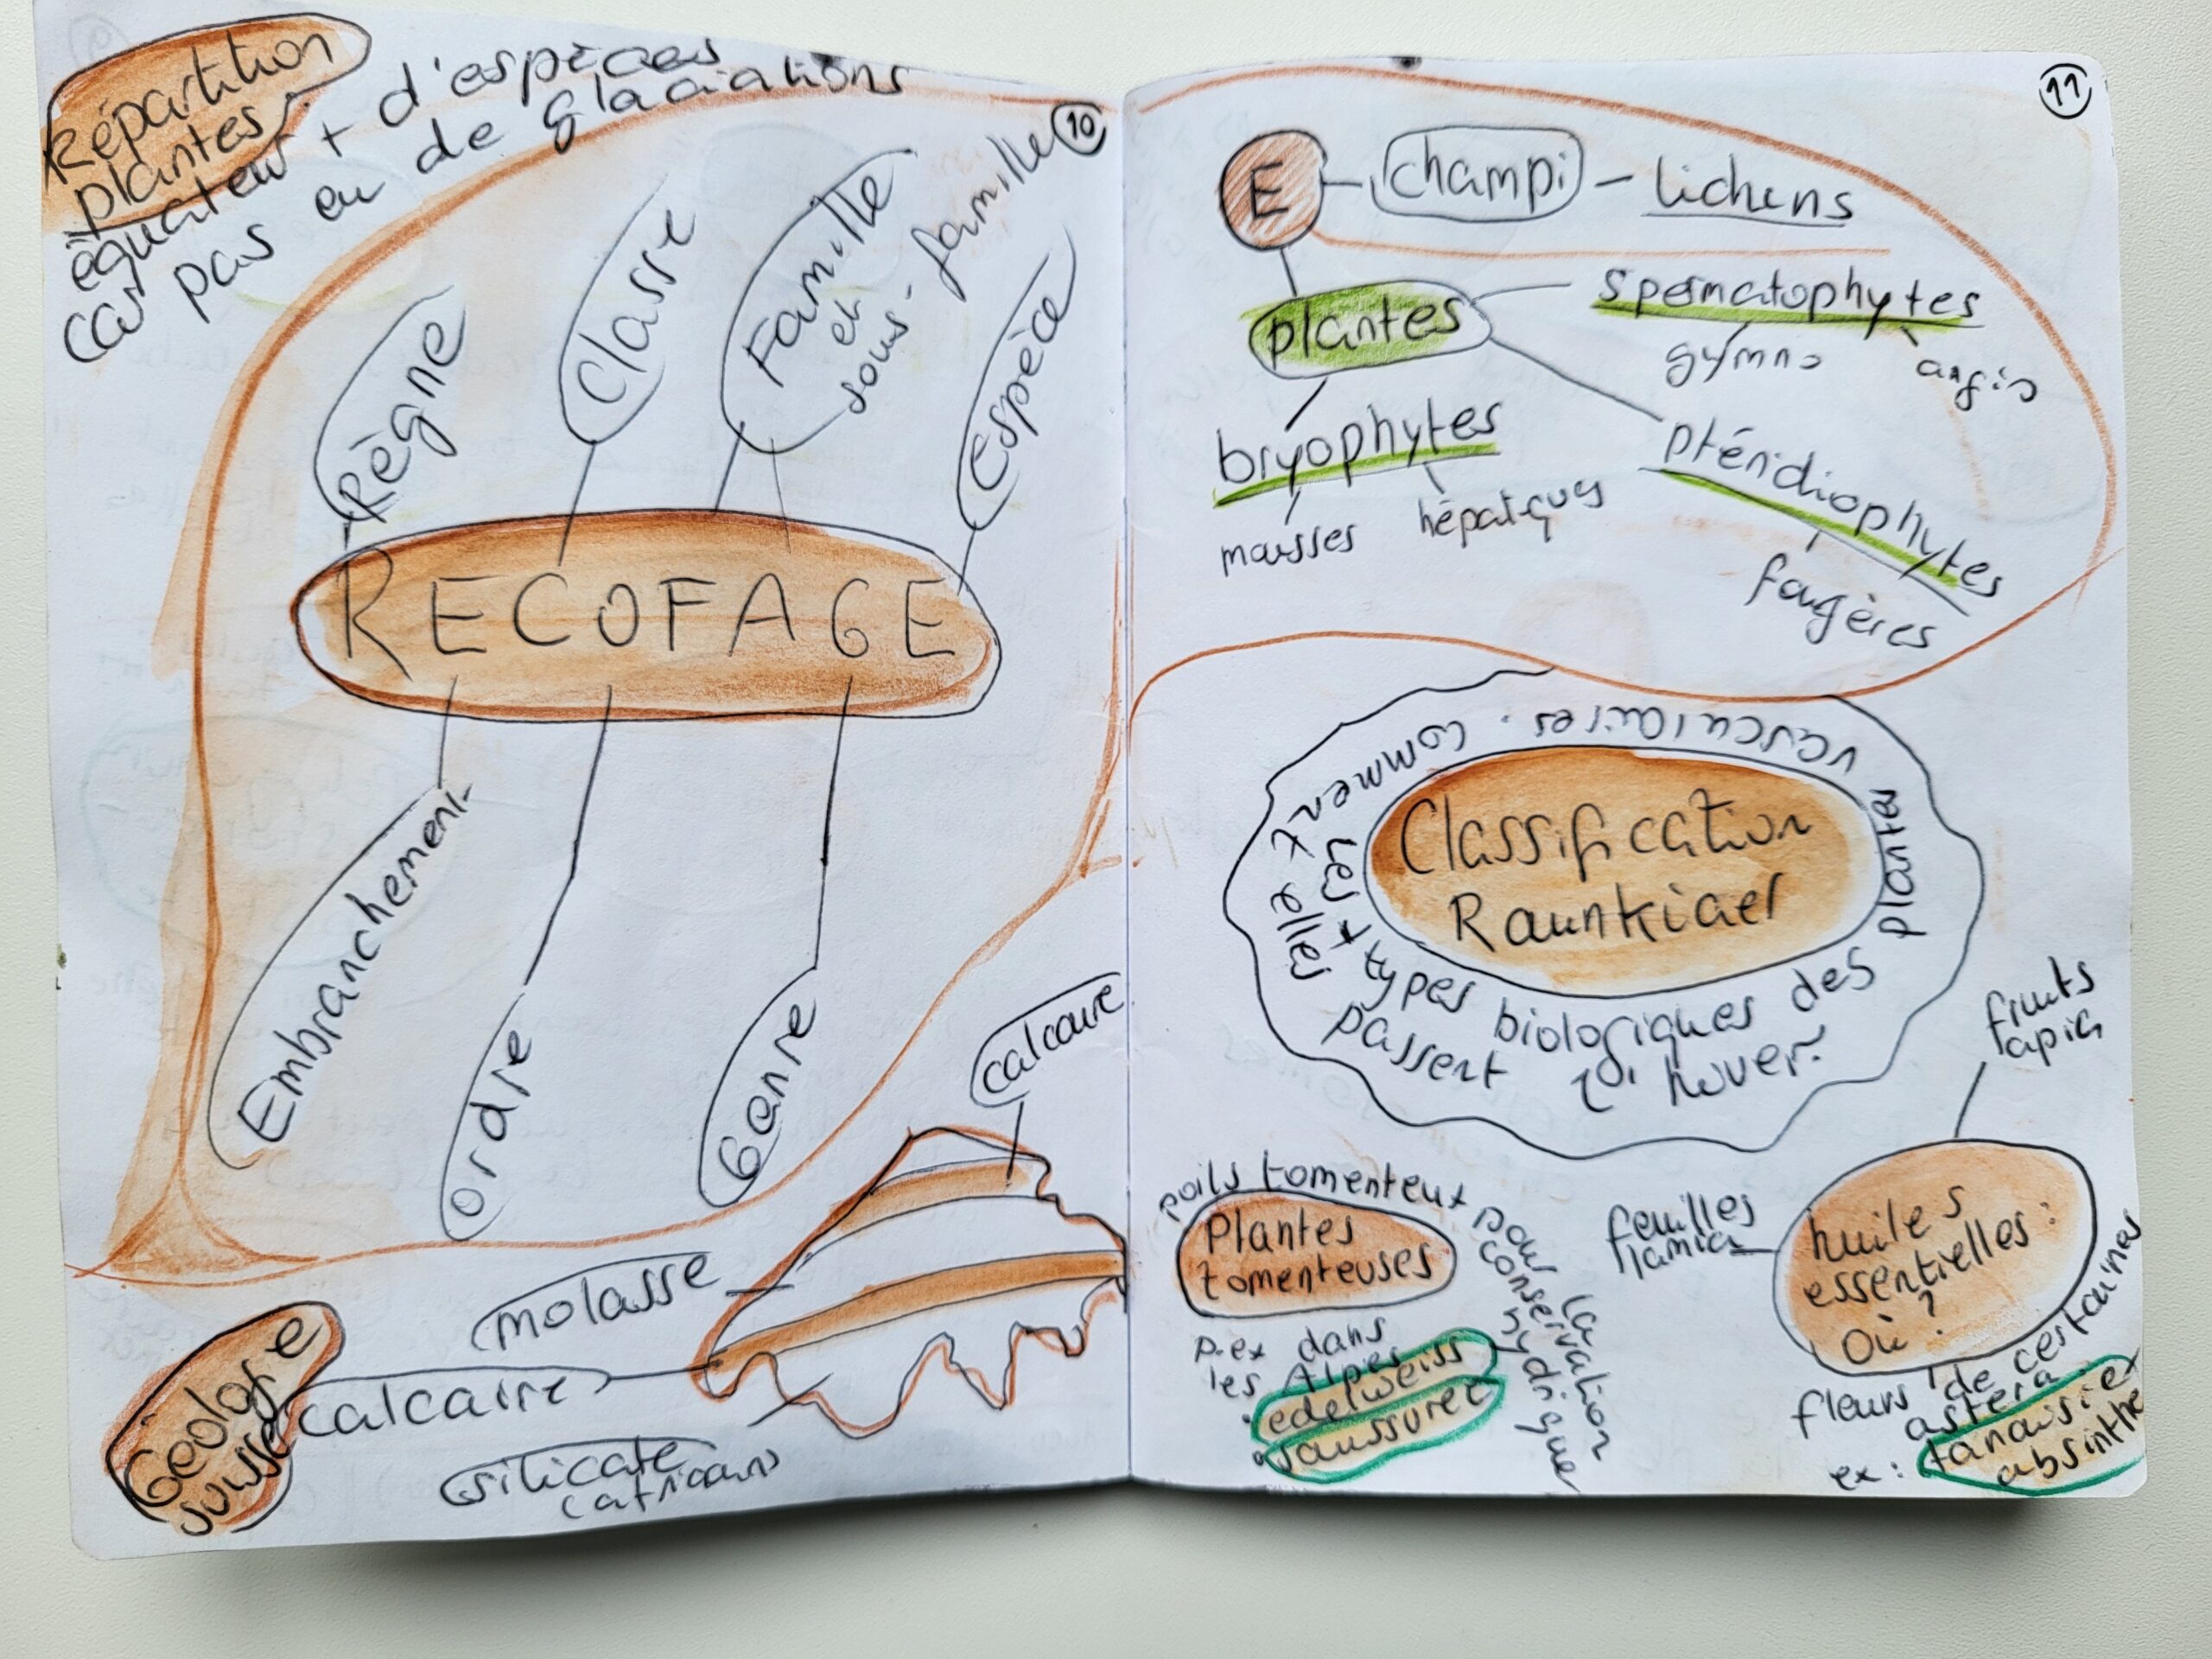 Répartition
plantes
équateur + d'espèces
car pas eu de glaciations
10
Règne
Classe
Famille
et
sous-famille
Espèce
RECOFAGE
Embranchement
ordre
Genre
calcaire
molasse
calcaire
silicate
Géologie
suisse
11
E
champi - lichens
plantes
spermatophytes
gymno
angio
bryophytes
mousses
hépatiques
ptéridiophytes
fougères
Classification
Raunkiaer
Les ≠ types biologiques des plantes
vasculaires. comment
elles
passent l'hiver.
poils tomenteux pour la
conservation
hydrique
Plantes
tomenteuses
p.ex dans
les Alpes
• edelweiss
• saussurée
fruits
apia
feuilles
lamia
huiles
essentielles:
Où ?
fleurs de certaines
astera
ex: tanaisie
absinthe